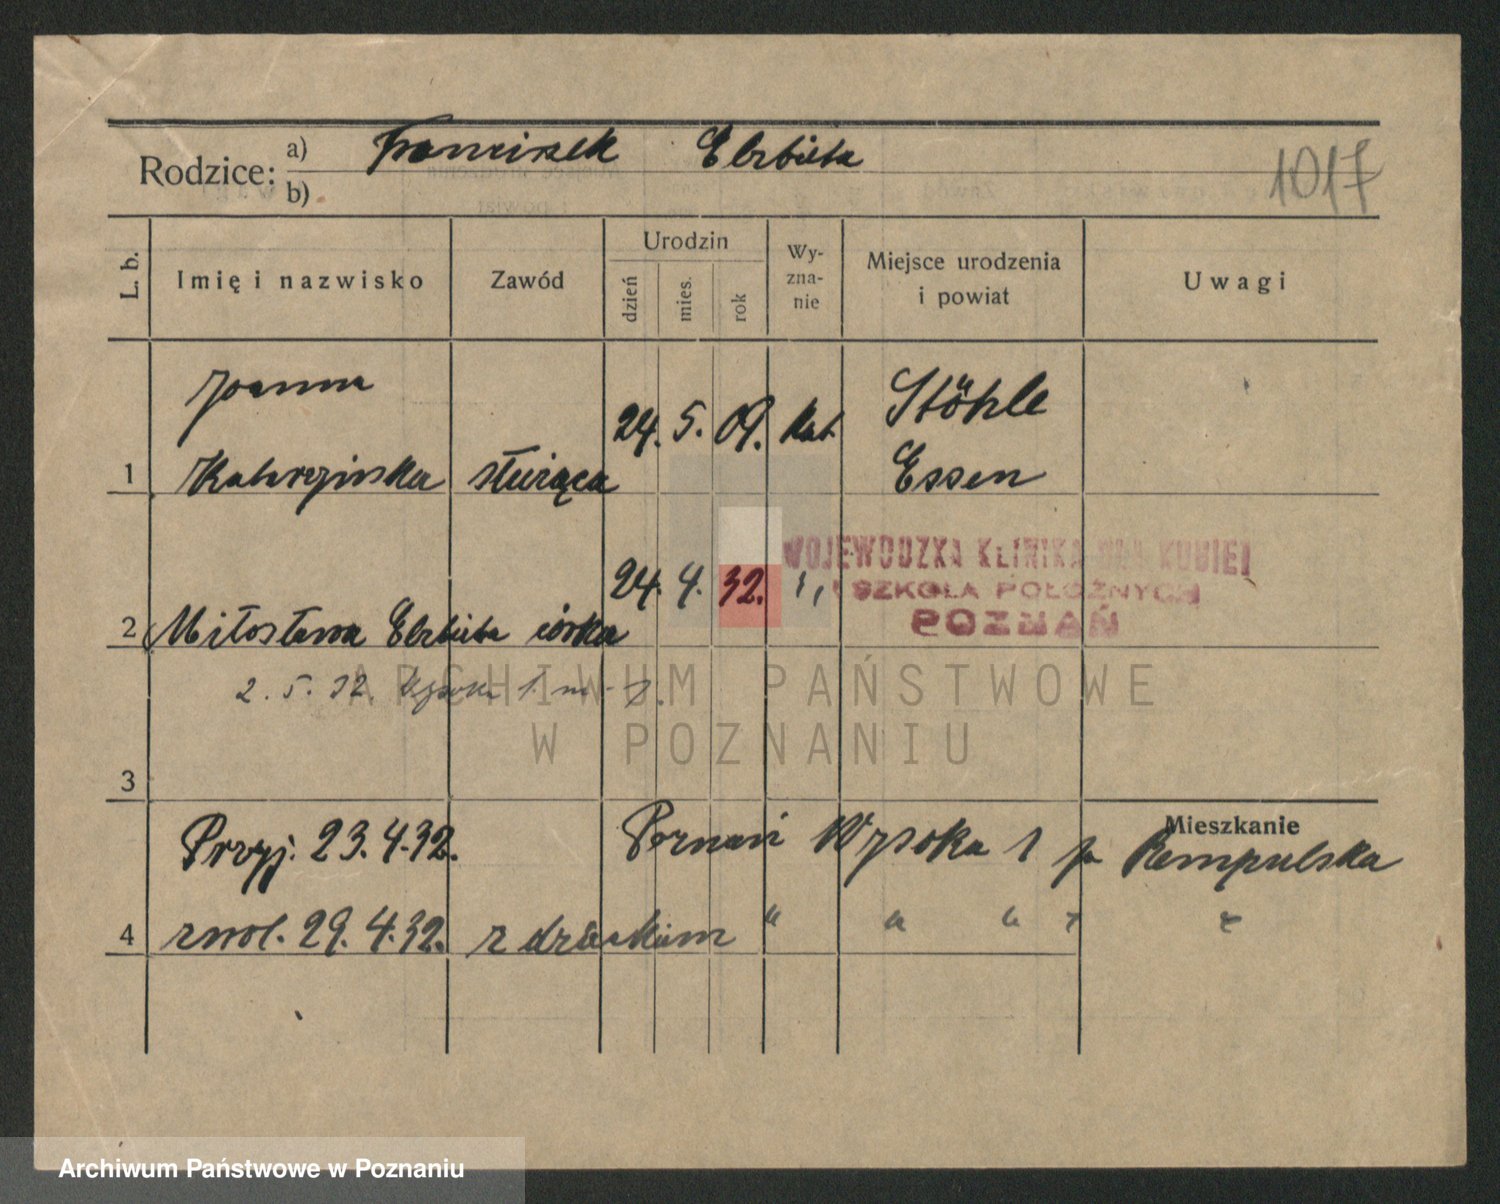 Rodzice: a) Franciszek Elżbieta
b)
1017
L. b. Imię i nazwisko Zawód Urodzin dzień mies. rok Wy-zna-nie Miejsce urodzenia i powiat Uwagi
Joanna Stöhle
1 służąca 24. 5. 09. kat. Essen
WOJEWÓDZKA KLINIKA DLA KOBIET
I SZKOŁA POŁOŻNYCH
POZNAŃ
2 Miłosława Elżbieta córka 24. 4. 32. ,,
2. 5. 32. Wysoka 1
ARCHIWUM PAŃSTWOWE
W POZNANIU
3
Mieszkanie
Przyj. 23. 4. 32. Poznań Wysoka 1 Rempulska
4 zwol. 29. 4. 32. z dzieckiem " " " "
Archiwum Państwowe w Poznaniu